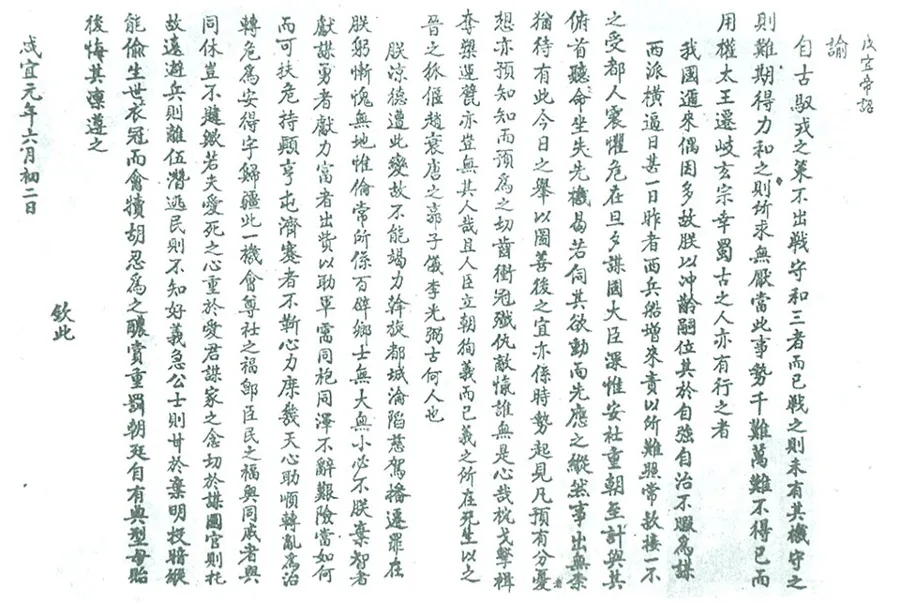 咸宜帝詔
諭
自古馭戎之策不出戰守和三者而已戰之則未有其機守之
則難期得力和之則所求無厭當此事勢千難萬難不得已而
用權太王遷岐玄宗幸蜀古之人亦有行之者
我國邇來偶因多故朕以冲齡嗣位其於自強自治不暇為謀
西派橫逼日甚一日昨者西兵船增來責以所難照常款接一不
之受都人震懼危在旦夕謀國大臣深惟安社重朝至計與其
俯首聽命坐失先機曷若伺其欲動而先應之縱然事出無柰
猶待有此今日之舉以圖善後之宜亦係時勢起見凡預有分憂者
想亦預知知而預為之切齒衝冠殲仇敵愾誰無是心哉枕戈擊楫
奪槊運甓亦豈無其人哉且人臣立朝狥義而已義之所在死生以之
晉之狐偃趙衰唐之郭子儀李光弼古何人也
朕涼德遭此變故不能竭力幹旋都城淪陷慈駕播遷罪在
朕躬慚愧無地惟倫常所係百辟鄉士無大無小必不朕棄智者
獻謀勇者獻力富者出貲以助軍需同袍同澤不辭艱險當如何
而可扶危持顛亨屯濟蹇者不靳心力庶幾天心助順轉亂為治
轉危為安得字歸疆此一機會尊社之福卽臣民之福與同戚者與
同休豈不韙歟若夫愛死之心重於愛君謀家之念切於謀國官則托
故遠避兵則離伍潛逃民則不知好義急公士則甘於棄明投暗縱
能偷生世衣冠而禽犢胡忍為之醲賞重罰朝廷自有典型毋貽
後悔其凜遵之
欽此
咸宜元年六月初二日